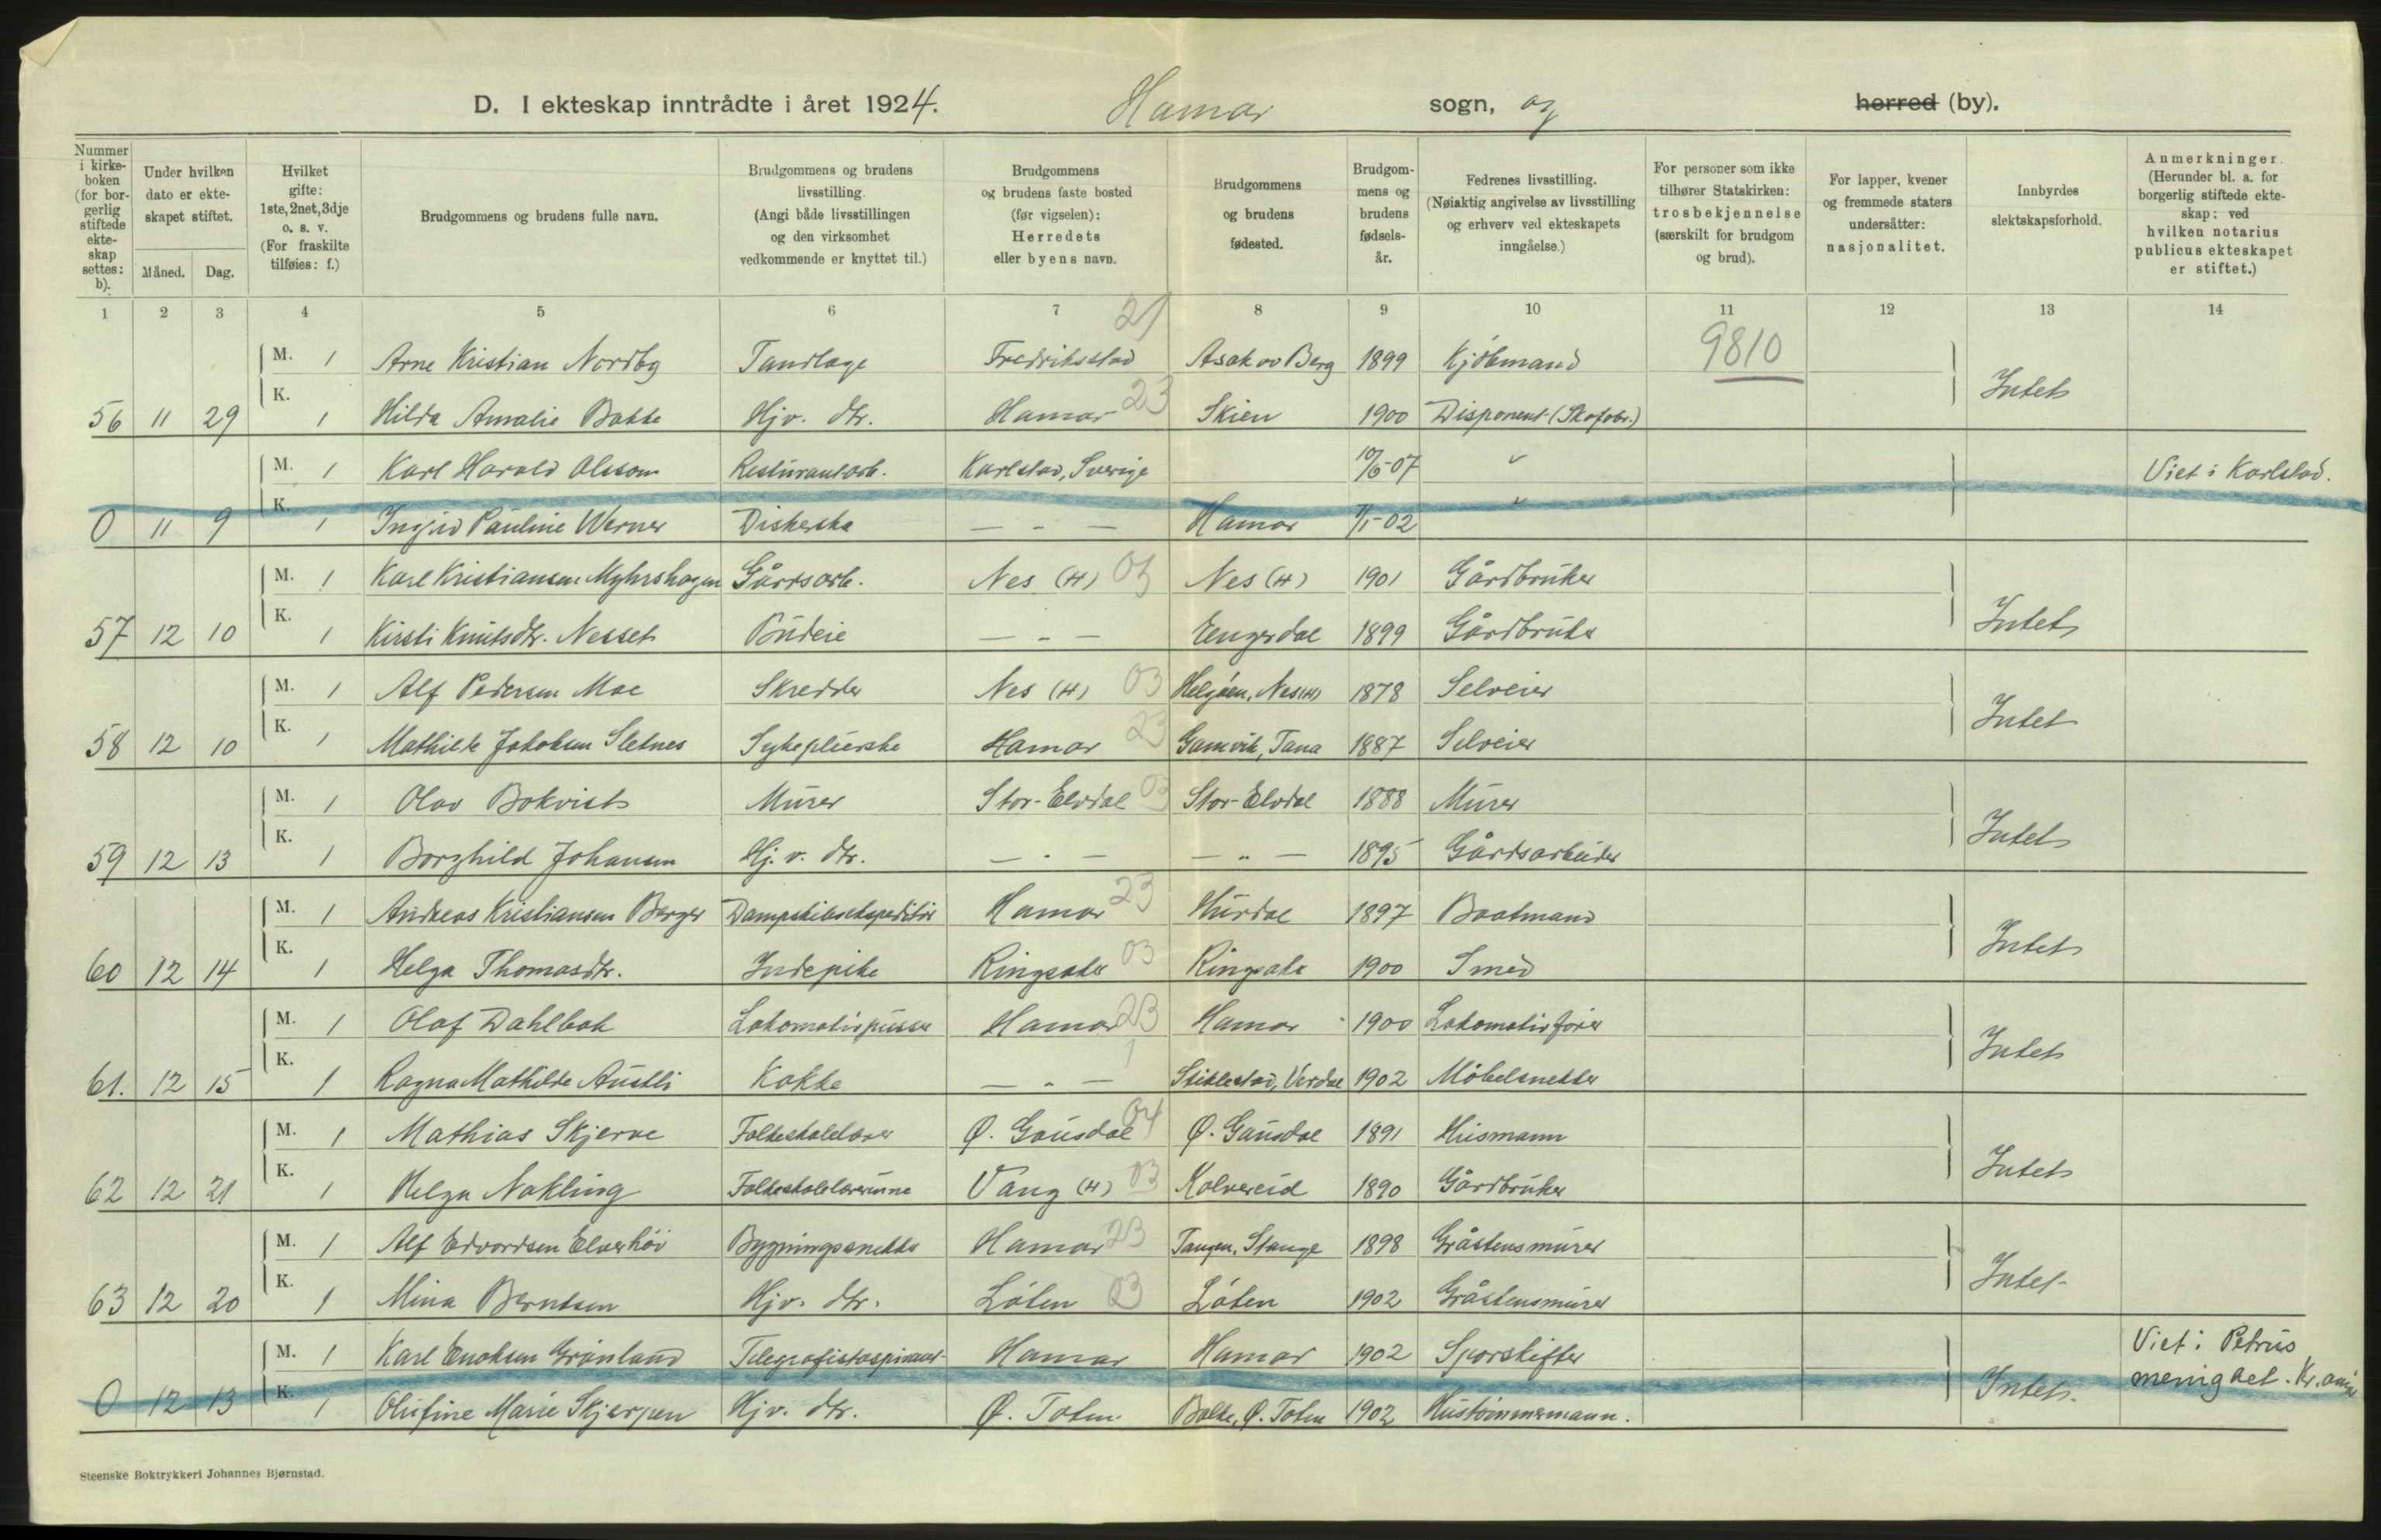 D. I ekteskap inntrådte i året 1924. Hamar sogn, og herred (by).
Nummer i kirke-boken (for bor-gerlig stiftede ekte-skap settes: b).
Under hvilken dato er ekte-skapet stiftet.
Måned. Dag.
Hvilket gifte: 1ste, 2net, 3dje o. s. v. (For fraskilte tilføies: f.)
Brudgommens og brudens fulle navn.
Brudgommens og brudens livsstilling. (Angi både livsstillingen og den virksomhet vedkommende er knyttet til.)
Brudgommens og brudens faste bosted (før vigselen): Herredets eller byens navn.
Brudgommens og brudens fødested.
Brudgom-mens og brudens fødsels-år.
Fedrenes livsstilling. (Nøiaktig angivelse av livsstilling og erhverv ved ekteskapets inngåelse.)
For personer som ikke tilhører Statskirken: trosbekjennelse (særskilt for brudgom og brud).
For lapper, kvener og fremmede staters undersåtter: nasjonalitet.
Innbyrdes slektskapsforhold.
Anmerkninger. (Herunder bl. a. for borgerlig stiftede ekte-skap: ved hvilken notarius publicus ekteskapet er stiftet.)
1 2 3 4 5 6 7 8 9 10 11 12 13 14
M. 1 Arne Kristian Nordby Tandlæge Fredriksstad 21 Asak vv Berg 1899 Kjøbmand 9810
56 11 29 K. 1 Hilda Amalie Bakke Hjv. dtr. Hamar 23 Skien 1900 Disponent (Skofabr.) Intet
M. 1 Karl Harald Olsson Resturantarb. Karlstad, Sverige 10/6-07 Viet i Karlstad.
0 11 9 K. 1 Ingrid Pauline Werner Diskerska — " — Hamar 7/1-02
M. 1 Karl Kristiansen Myhrshagen Gårdsarb. Nes (H) 03 Nes (H) 1901 Gårdbruker
57 12 10 K. 1 Kirsti Knutsdtr. Nesset Budeie — " — Engerdal 1899 Gårdbruker Intet
M. 1 Alf Pedersen Moe Skredder Nes (H) 03 Helgøen, Nes (H) 1878 Selveier
58 12 10 K. 1 Mathilde Jakobsen Sletnes Sykepleierske Hamar 23 Gamvik, Tana 1887 Selveier Intet
M. 1 Olav Bokvist Murer Stor-Elvdal 03 Stor-Elvdal 1888 Murer
59 12 13 K. 1 Borghild Johansen Hj. v. dtr. — " — — " — 1895 Gårdsarbeider Intet
M. 1 Andreas Kristiansen Berger Dampskibsekspeditør Hamar 23 Hurdal 1897 Baatmand
60 12 14 K. 1 Helga Thomasdtr. Indepike Ringsaker 03 Ringsaker 1900 Smed Intet
M. 1 Olaf Dahlbak Lokomotivpusser Hamar 23 Hamar 1900 Lokomotivfører
61. 12 15 K. 1 Ragna Mathilde Austli Kokke — " — Stiklestad, Verdal 1902 Møbelsnekker Intet
M. 1 Mathias Skjerve Folkeskolelærer Ø. Gausdal 04 Ø. Gausdal 1891 Husmann
62 12 21 K. 1 Helga Nakling Folkeskolelærerinne Vang (H) 03 Kolvereid 1890 Gårdbruker Intet
M. 1 Alf Edvardsen Elverhöi Bygningssnekker Hamar 23 Tangen, Stange 1898 Gråstensmurer
63 12 20 K. 1 Mina Berntsen Hjv. dtr. Løten 03 Løten 1902 Gråstensmurer Intet
M. 1 Karl Enoksen Grønland Telegrafistaspirant Hamar Hamar 1902 Sporskifter Viet i Petrus
0 12 13 K. 1 Olufine Marie Skjerpen Hjv. dtr. Ø. Toten Balke, Ø. Toten 1902 Hustømmermann. Intet. menighet.
Steenske Boktrykkeri Johannes Bjørnstad.